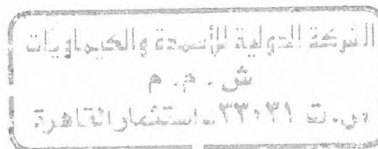 الشركة الدولية للأسمدة والكيماويات
ش . م . م
س.ت ٣٣٠٣١ ـ استثمار القاهرة